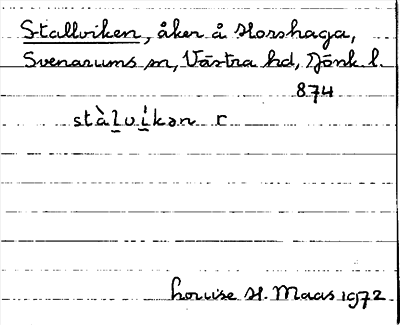 Stallviken, åker å Horshaga,
Svenarums sn, Västra hd, Jönk l.
874
stàl̲ví̲kən r
Louise H. Maas 1972